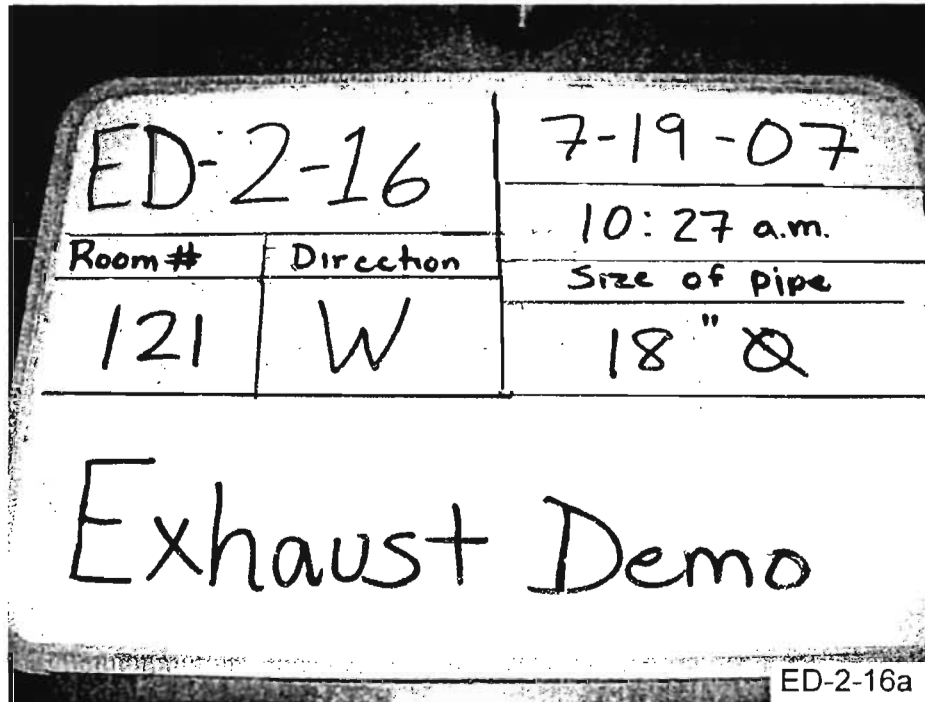 ED-2-16
7-19-07
10:27 a.m.
Room # Direction
Size of pipe
121 W
18" Ø
Exhaust Demo
ED-2-16a